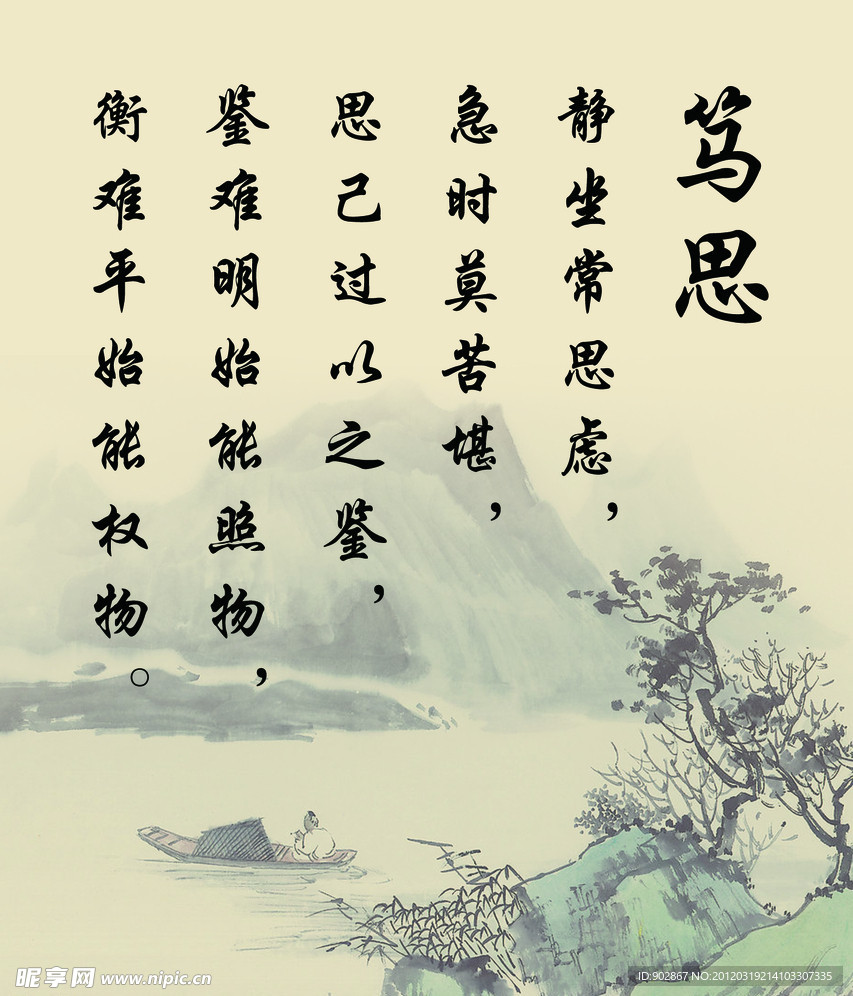 笃思
静坐常思虑，
急时莫苦堪，
思己过以之鉴，
鉴难明始能照物，
衡难平始能权物。
昵享网 www.nipic.cn
ID:902867 NO:20120319214103307335